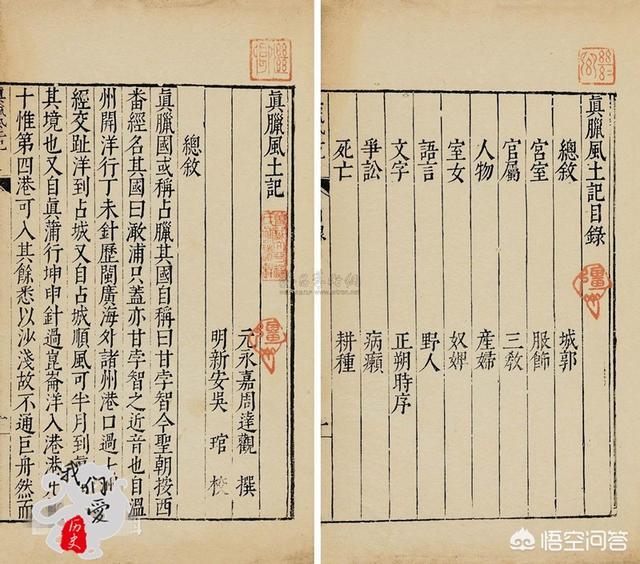 眞臘風土記目錄
總敘 城郭
宮室 服飾
官屬 三教
人物 產婦
室女 奴婢
語言 野人
文字 正朔時序
爭訟 病癩
死亡 耕種
眞臘風土記
元永嘉周達觀 撰
明新安吳 琯 校
總敘
眞臘國或稱占臘其國自稱曰甘孛智今聖朝按西
番經名其國曰澉浦只蓋亦甘孛智之近音也自溫
州開洋行丁未針歷閩廣海外諸州港口過七
經交趾洋到占城又自占城順風可半月到
其境也又自眞蒲行坤申針過崑崙洋入港港
十惟第四港可入其餘悉以沙淺故不通巨舟然而
我們愛
历史
悟空问答